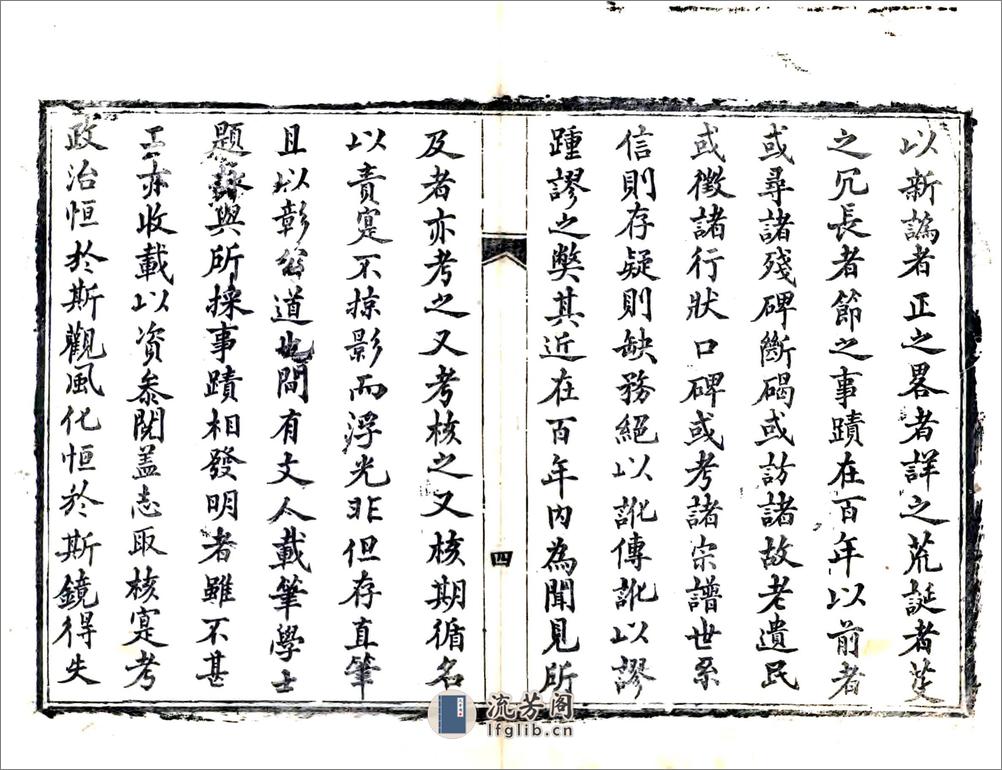 以新譌者正之畧者詳之荒誕者芟
之冗長者節之事蹟在百年以前者
或尋諸殘碑斷碣或訪諸故老遺民
或徵諸行狀口碑或考諸宗譜世系
信則存疑則缺務絕以訛傳訛以謬
踵謬之獘其近在百年內為聞見所
四
及者亦考之又考核之又核期循名
以責寔不掠影而浮光非但存直筆
且以彰公道也間有文人載筆學士
題詠與所採事蹟相發明者雖不甚
工亦收載以資叅閱盖志取核寔考
政治恒於斯觀風化恒於斯鏡得失
流芳阁
lfglib.cn